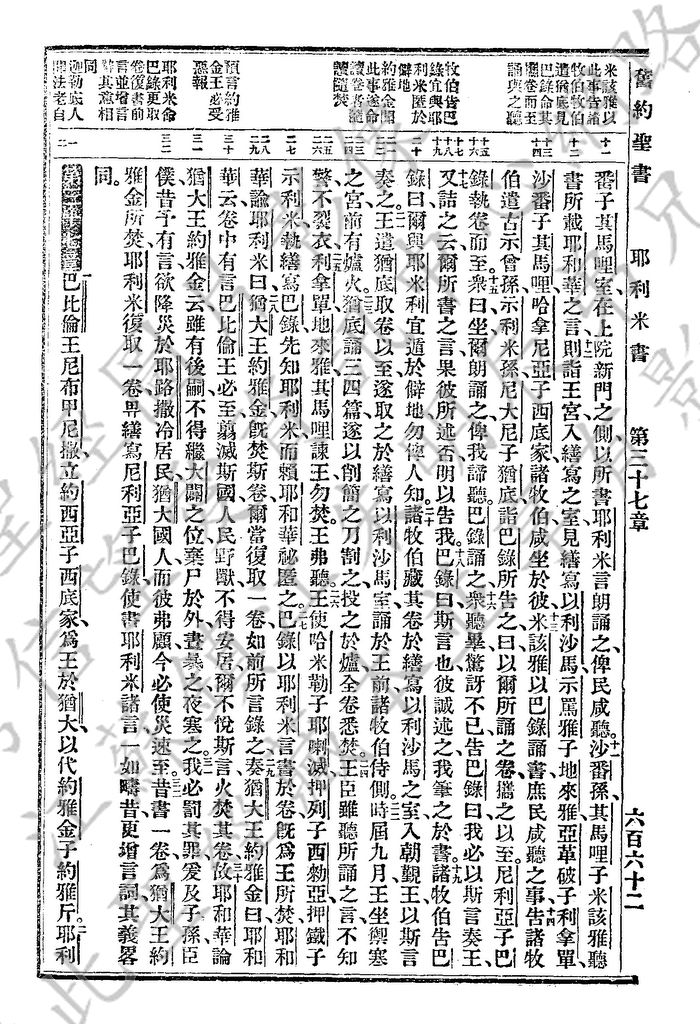 舊約聖書 耶利米書 第三十七章 六百六十二
米該雅以
此事告諸
牧伯牧伯
遣猶底見
巴錄命其
攜卷而至
誦與之聽
牧伯告巴
錄宜與耶
利米匿於
僻地
約雅金聞
此事遂命
讀卷者隨
讀隨焚
預言約雅
金王必受
惡報
耶利米命
巴錄更取
卷復書前
言並增言
辭其意相
同
迦勒底人
番子其馬哩室在上院新門之側以所書耶利米言朗誦之俾民咸聽沙番孫其馬哩子米該雅聽
書所載耶和華之言則詣王宮入繕寫之室見繕寫以利沙馬示罵雅子地來雅亞革破子利拿單
沙番子其馬哩哈拿尼亞子西底家諸牧伯咸坐於彼米該雅以巴錄誦書庶民咸聽之事告諸牧
伯遣古示曾孫示利米孫尼大尼子猶底詣巴錄所告之曰以爾所誦之卷攜之以至尼利亞子巴
錄執卷而至衆曰坐爾朗誦之俾我諦聽巴錄誦之衆聽畢驚訝不已告巴錄曰我必以斯言奏王
又詰之云爾所書之言果彼所述否明以告我巴錄曰斯言也彼誠述之我筆之於書諸牧伯告巴
錄曰爾與耶利米宜遁於僻地勿俾人知諸牧伯藏其卷於繕寫以利沙馬之室入朝覲王以斯言
奏之王遣猶底取卷以至遂取之於繕寫以利沙馬室誦於王前諸牧伯侍側時屆九月王坐禦寒
之宮前有爐火猶底誦三四篇遂以削簡之刀割之投之於爐全卷悉焚王臣雖聽所誦之言不知
警不裂衣利拿單地來雅其馬哩諫王勿焚王弗聽王使哈米勒子耶喇滅押列子西勑亞押鐵子
示利米執繕寫巴錄先知耶利米而賴耶和華祕匿之巴錄以耶利米言書於卷旣爲王所焚耶和
華諭耶利米曰猶大王約雅金旣焚斯卷爾當復取一卷如前所言錄之奏猶大王約雅金曰耶和
華云卷中有言巴比倫王必至翦滅斯國人民野獸不得安居爾不悅斯言火焚其卷故耶和華論
猶大王約雅金云雖有後嗣不得繼大闢之位棄尸於外晝暴之夜寒之我必罰其罪爰及子孫臣
僕昔予有言欲降災於耶路撒冷居民猶大國人而彼弗顧今必使災速至昔書一卷爲猶大王約
雅金所焚耶利米復取一卷畀繕寫尼利亞子巴錄使書耶利米諸言一如疇昔更增言詞其義畧
同
巴比倫王尼布甲尼撒立約西亞子西底家爲王於猶大以代約雅金子約雅斤耶利